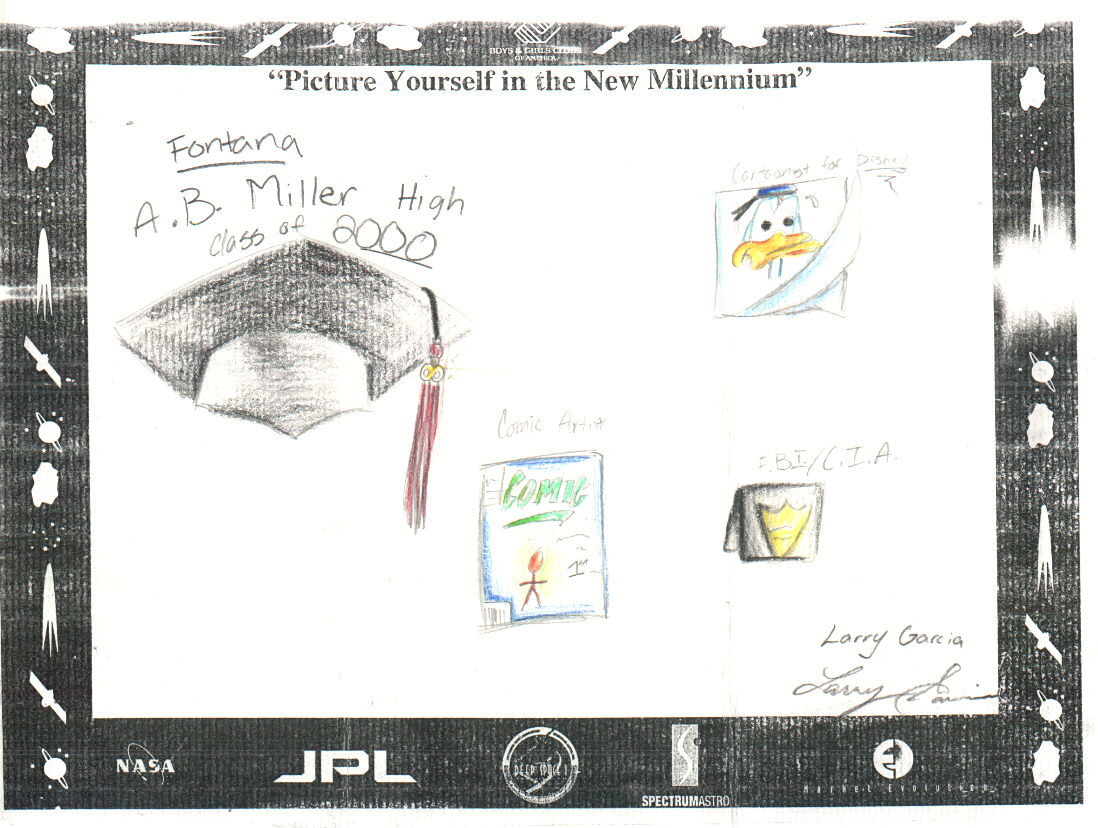 BOYS & GIRLS CLUBS
OF AMERICA
“Picture Yourself in the New Millennium”
Fontana
A.B. Miller High
class of 2000
Cartoonist for Disney
Comic Artist
COMIC
1st
F.B.I/C.I.A.
Larry Garcia
Larry Garcia
NASA
JPL
DEEP SPACE 1
SPECTRUMASTRO
Market Evolution